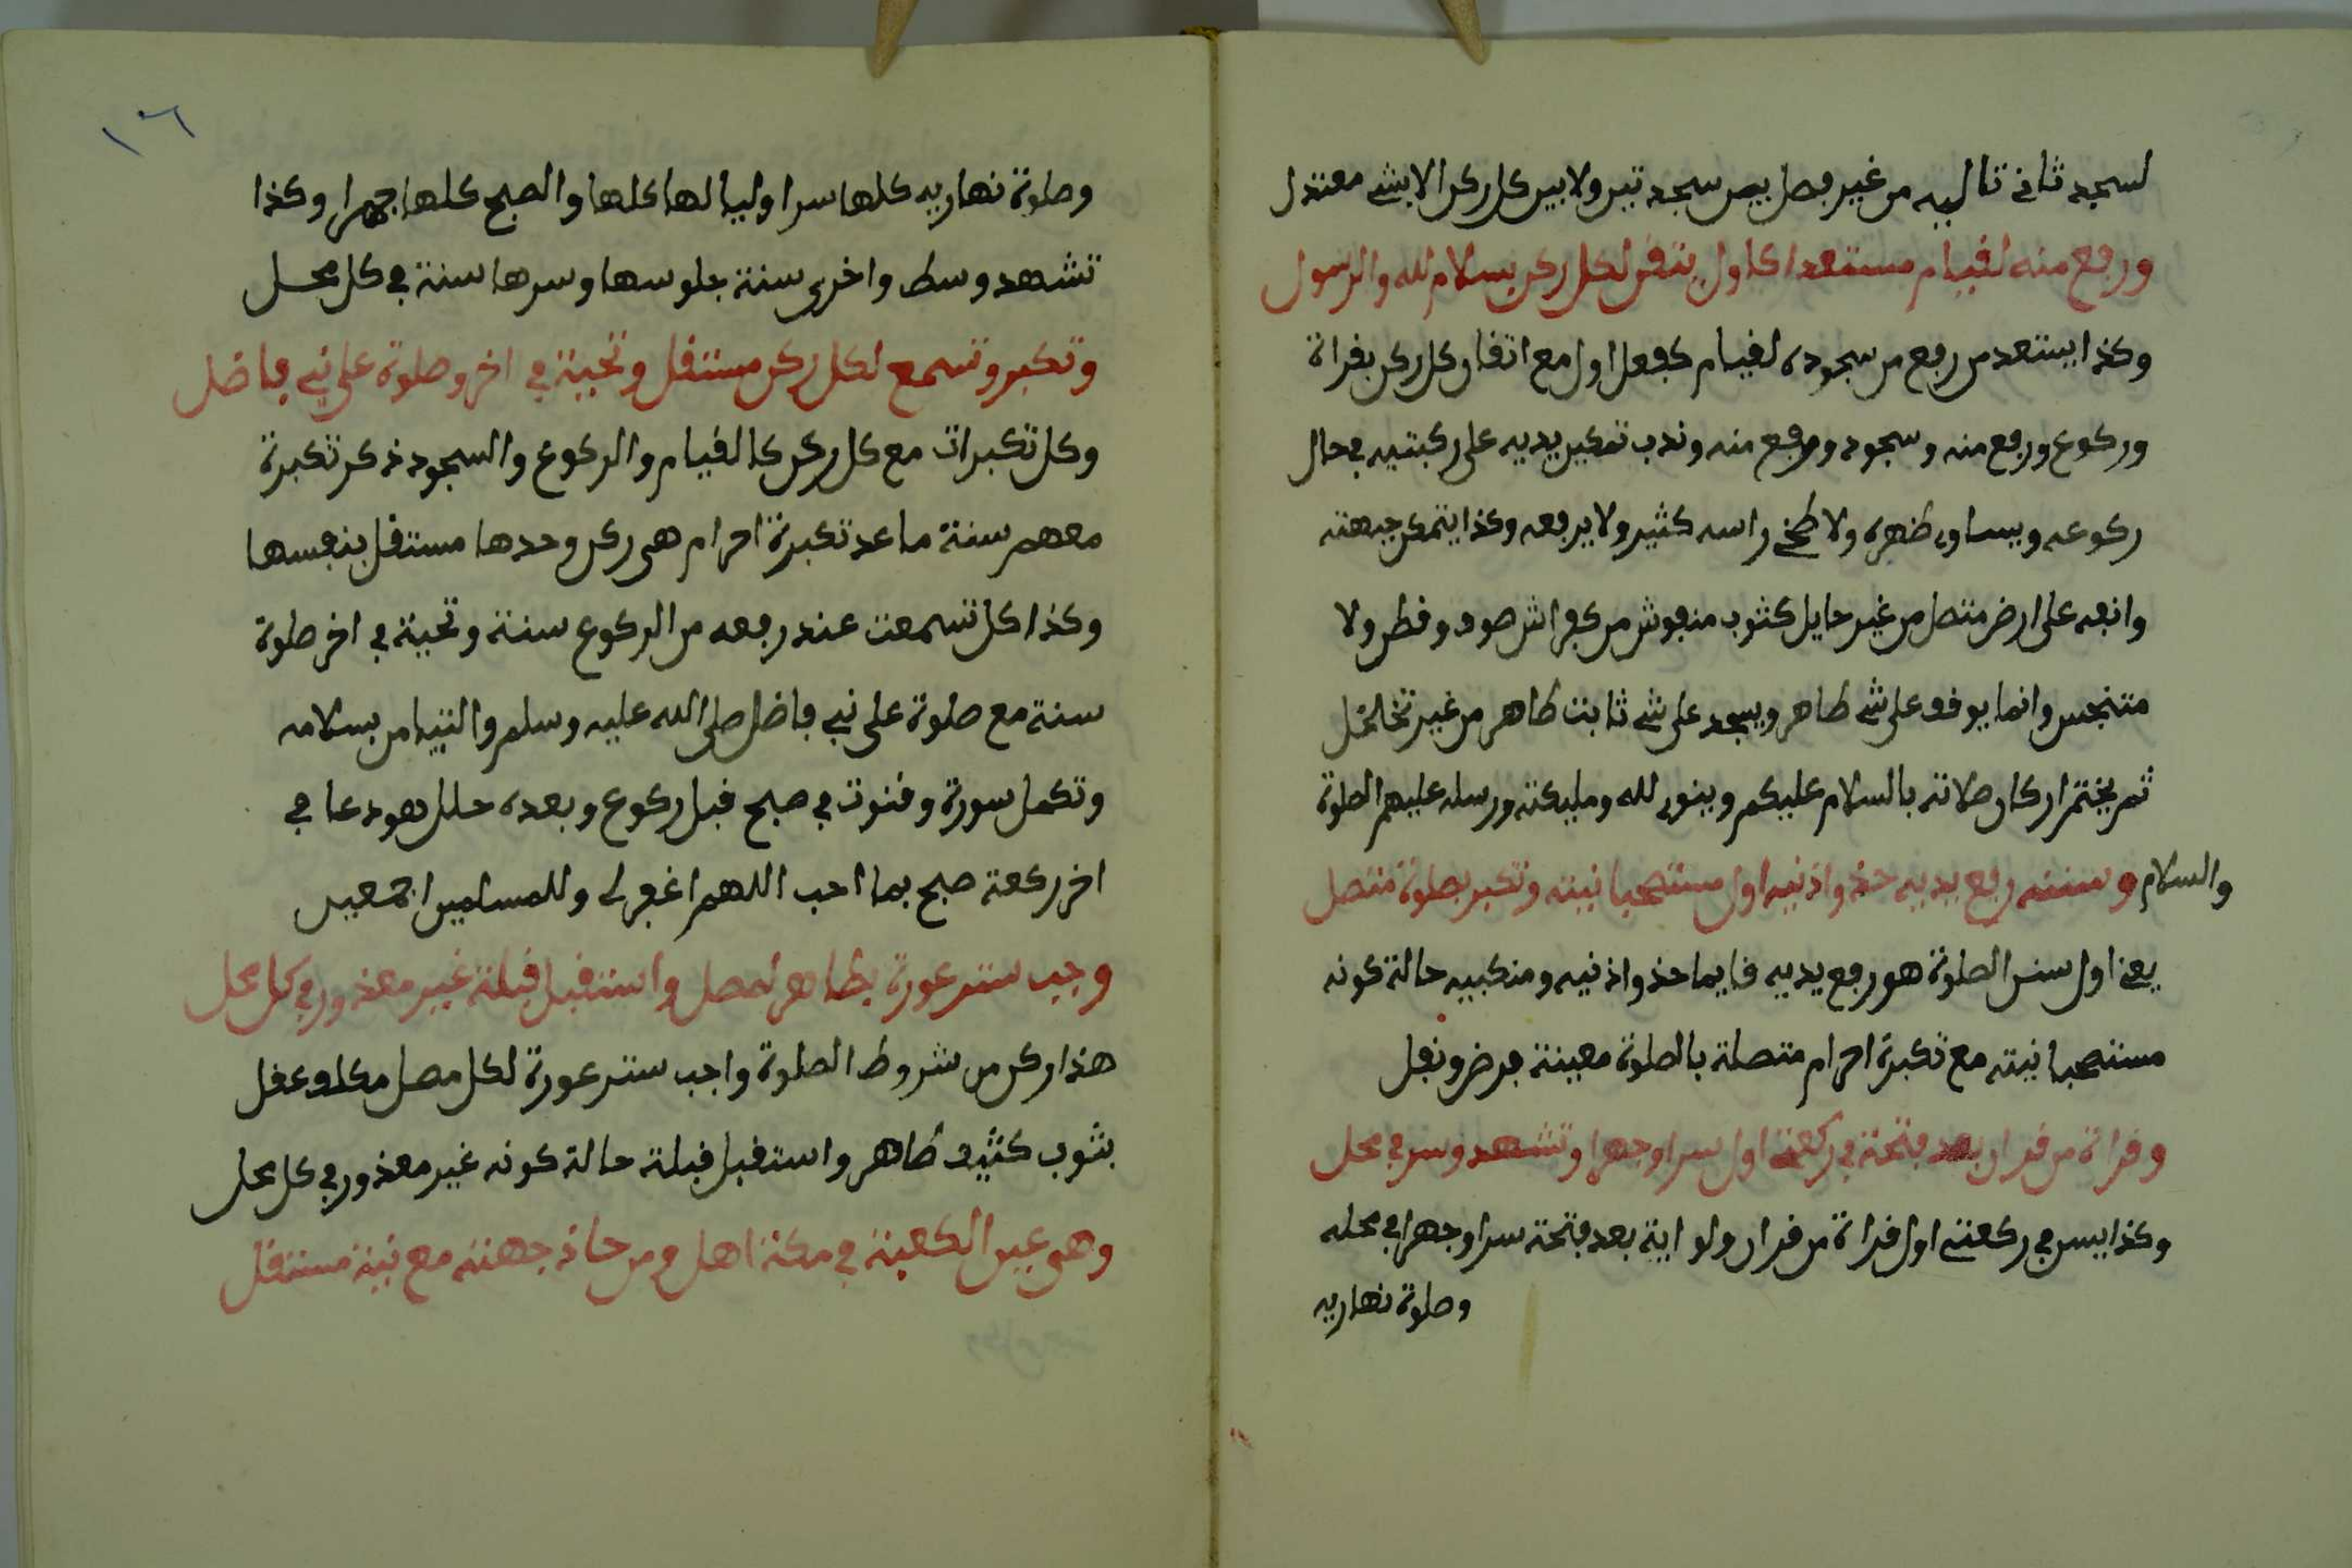 لسجد ثاني تاليه من غير فصل بين سجدتين ولا بين كل ركن الا بشئ معتدل
ورفع منه لقيام مستقعدا كاول بتقن لكل ركن بسلام لله والرسول
وكذا يستعد من رفع من سجوده لقيام كفعل اول مع اتقان كل ركن بقراة
وركوع ورفع منه وسجود ورفع منه وندب تمكين يديه على ركبتيه في حال
ركوعه ويساوي ظهره ولا راسه كثير ولا يرفعه وكذا يتمكن جبهته
وانفه على ارض متصل من غير حايل كثوب منفوش من كفراش صوف وقطن ولا
متنجس وانما يوقف على شئ طاهر ويسجد على شئ ثابت طاهر من غير تخلخل
ثم يختم اركان صلاته بالسلام عليكم وينوي لله ومليكته ورسله عليهم الصلوة
والسلام وسننه رفع يديه حذو اذنيه اول مستصحبا نيته وتكبر بصلوة متصل
يعني اول سنن الصلوة هو رفع يديه قايما حذو اذنيه ومنكبيه حالة كونه
مستصحبا نيته مع تكبرة احرام متصلة بالصلوة معينة فرض ونفل
وقراة من قران بعد فتحة في ركعة اول سرا وجهرا وتشهد وسر في محل
وكذا يسن في ركعتي اول قراة من قران ولو اية بعد فتحة سرا وجهرا في محله
وصلوة نهاريه
١٠٦
وصلوة نهاريه كلها سرا وليالها كلها والصبح كلها جهرا وكذا
تشهد وسط واخرى سنة جلوسها وسرها سنة في كل محل
وتكبر وتسمع لكل ركن مستقل وتحية في اخر وصلوة على نبي فاضل
وكل تكبرات مع كل ركن كالقيام والركوع والسجود ذكر تكبرة
معهم سنة ما عد تكبرة احرام هي ركن وحدها مستقل بنفسها
وكذا كل تسمعت عند رفعه من الركوع سنة وتحية في اخر صلوة
سنة مع صلوة على نبي فاضل صلى الله عليه وسلم والتيامن بسلامه
وتكمل سورة وقنوت في صبح قبل ركوع وبعده حلل هو دعا في
اخر ركعة صبح بما احب اللهم اغفر لي وللمسلمين اجمعين
وجب ستر عورة بطاهر لمصل واستقبل قبلة غير معذور في كل محل
هذا ركن من شروط الصلوة واجب ستر عورة لكل مصل مكلف عقل
بثوب كثيف طاهر واستقبل قبلة حالة كونه غير معذور في كل محل
وهي عين الكعبة في مكة اهل ومن حاذ جهته مع نية مستقل